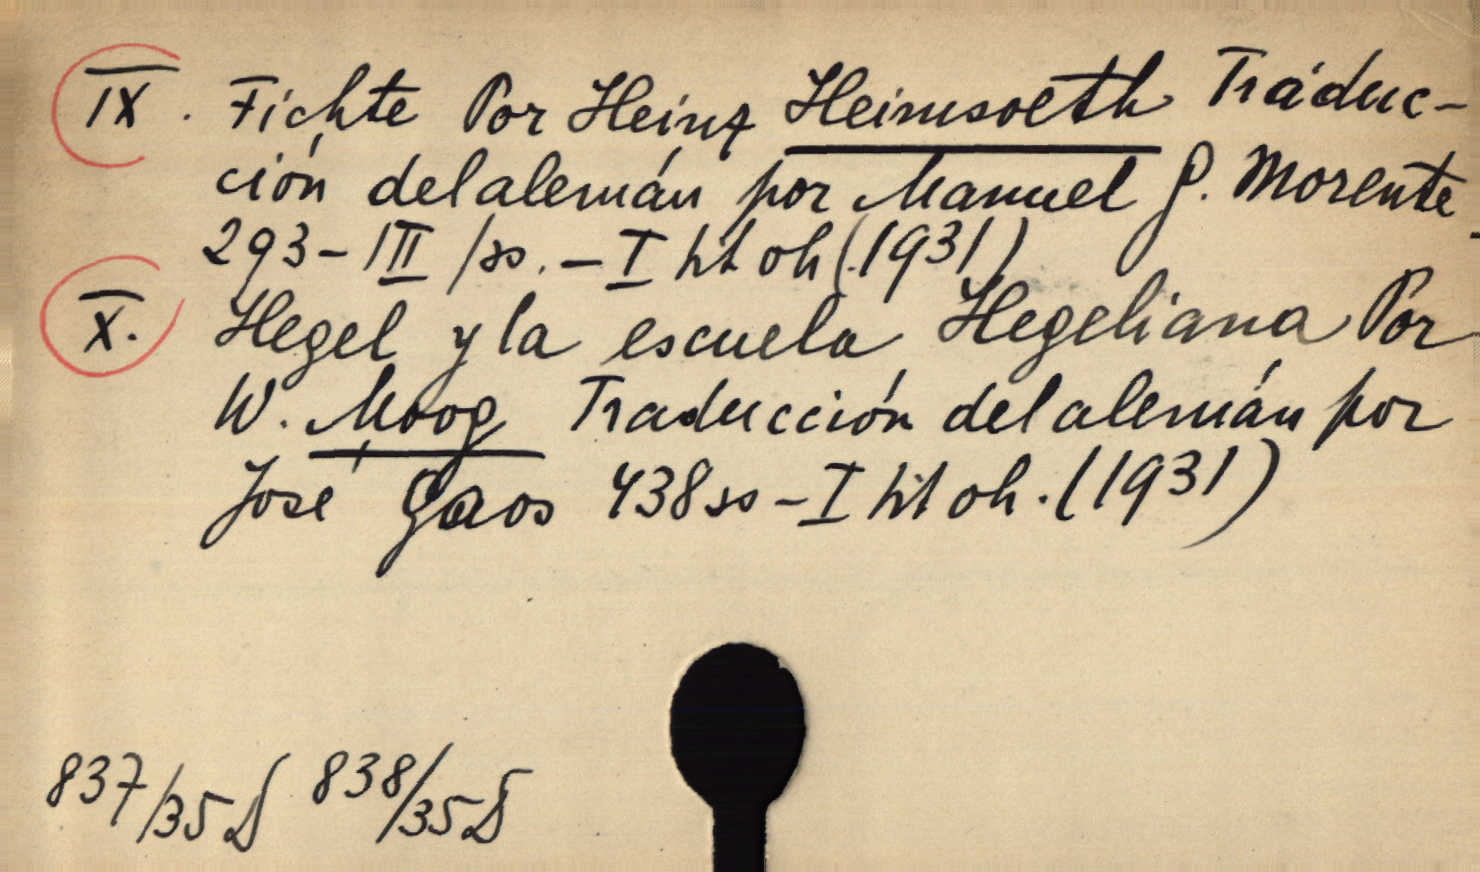 IX. Fichte Por Heinz Heimsoeth Traduc-
ción del alemán por Manuel G. Morente
293-III /ss. - I hit oh (1931)
X. Hegel y la escuela Hegeliana Por
W. Moog Traducción del alemán por
José Gaos 438 ss - I hit oh. (1931)
837/35 838/35